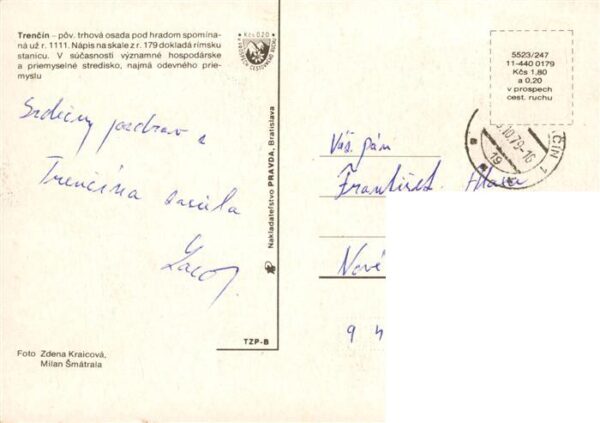 Trenčín – pôv. trhová osada pod hradom spomína-
ná už r. 1111. Nápis na skale z r. 179 dokladá rímsku
stanicu. V súčasnosti významné hospodárske
a priemyselné stredisko, najmä odevného prie-
myslu
Kčs 0,20
V PROSPECH CESTOVNÉHO RUCHU
5523/247
11-440 0179
Kčs 1,80
a 0,20
v prospech
cest. ruchu
Srdečný pozdrav z
Trenčína
Nakladateľstvo PRAVDA, Bratislava
TZP-B
Foto Zdena Kraicová,
Milan Šmátrala
.10.79-16
ČÍN 1
19
Váž. pán
František
Nové
9